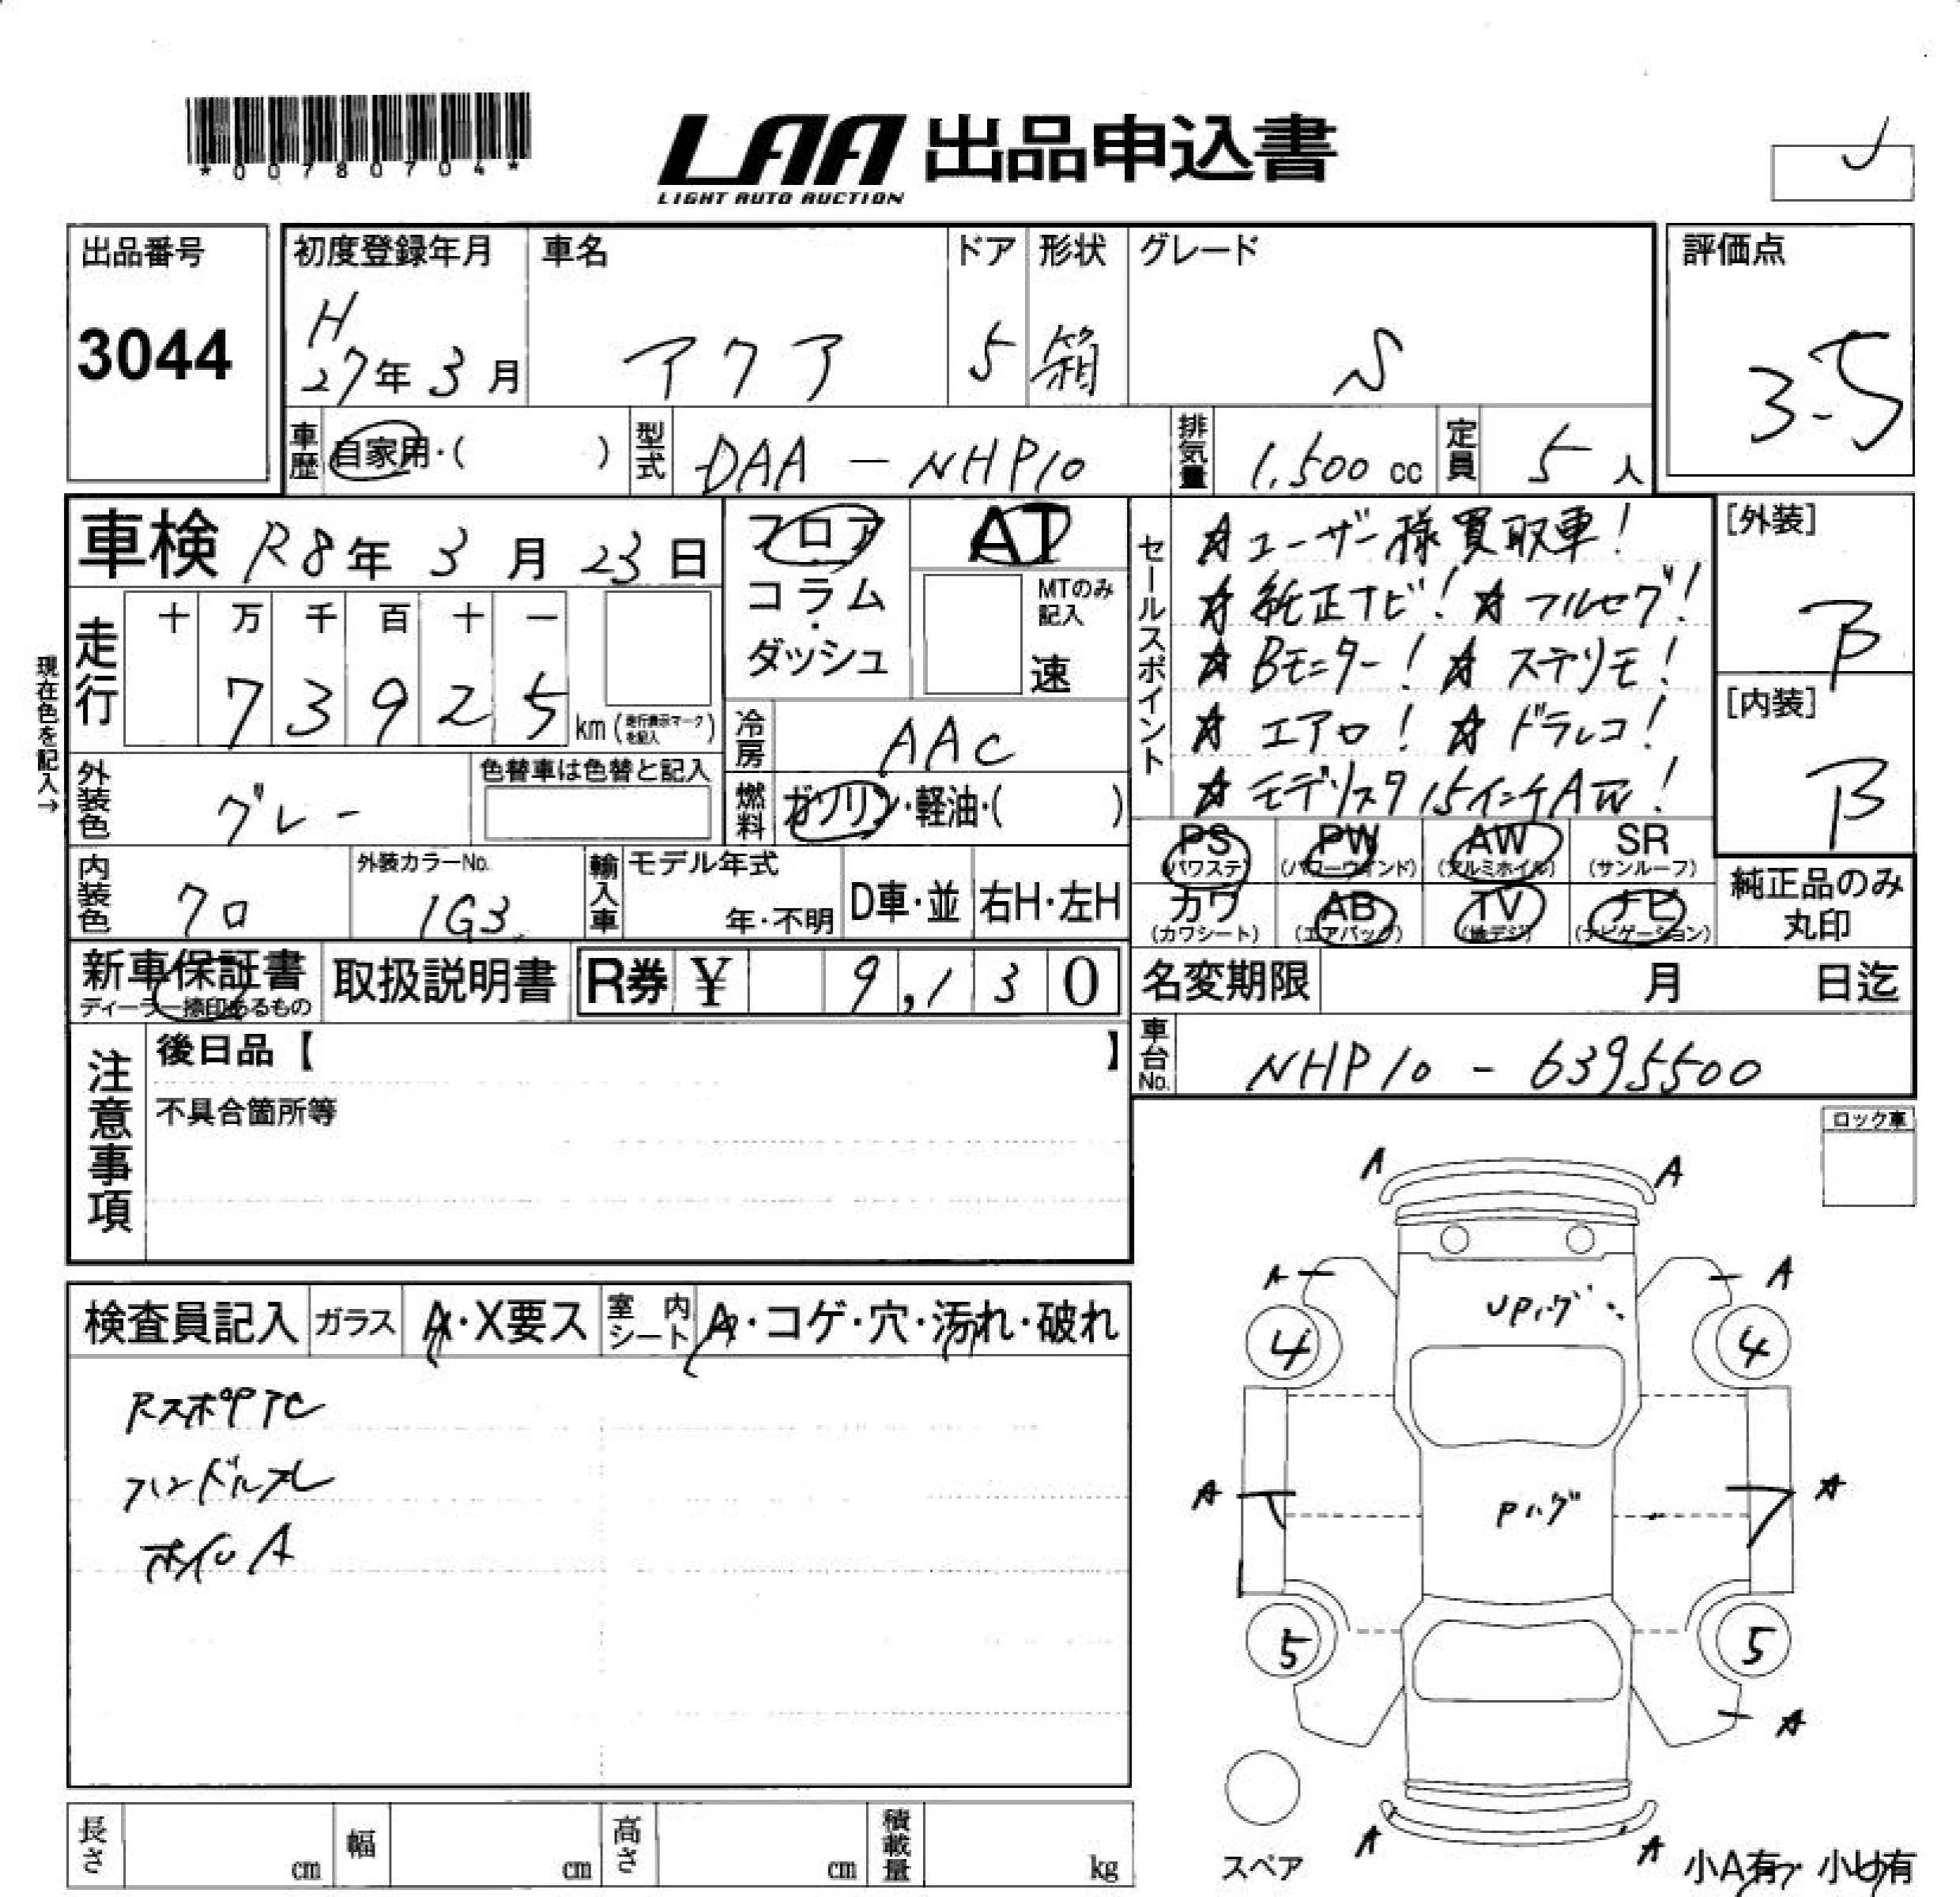 *00780704*
LAA 出品申込書
LIGHT AUTO AUCTION
出品番号
3044
初度登録年月
H
27年 3月
車名
アクア
ドア
5
形状
箱
グレード
S
評価点
3.5
車歴 自家用・( )
型式 DAA-NHP10
排気量 1,500 cc
定員 5人
車検 R8年 3月 23日
走行
十 万 千 百 十 一
7 3 9 2 5 km (走行表示マークを記入)
現在色を記入→
フロア
コラム・
ダッシュ
AT
MTのみ記入
速
冷房 AAC
外装色 グレー
色替車は色替と記入
燃料 ガソリン・軽油・( )
内装色 クロ
外装カラーNo.
1G3
輸入車
モデル年式
年・不明
D車・並
右H・左H
セールスポイント
☆ユーザー様買取車!
☆純正ナビ! ☆フルセグ!
☆Bモニター! ☆ステリモ!
☆エアロ! ☆ドラレコ!
☆モデリスタ15インチAW!
[外装]
B
[内装]
B
PS (パワステ)
PW (パワーウインド)
AW (アルミホイル)
SR (サンルーフ)
カワ (カワシート)
AB (エアバッグ)
TV (地デジ)
ナビ (ナビゲーション)
純正品のみ
丸印
新車保証書
ディーラー捺印あるもの
取扱説明書
R券 ¥ 9,130
名変期限 月 日迄
車台No. NHP10-6395500
注意事項
後日品【 】
不具合箇所等
ロック車
検査員記入
ガラス A・X要ス
室内シート A・コゲ・穴・汚れ・破れ
ハンドルスレ
ホイルA
A A
A A
UPハゲ
4 4
A A
Pハゲ
5 5
A
A A
スペア
小A有・小U有
長さ cm
幅 cm
高さ cm
積載量 kg